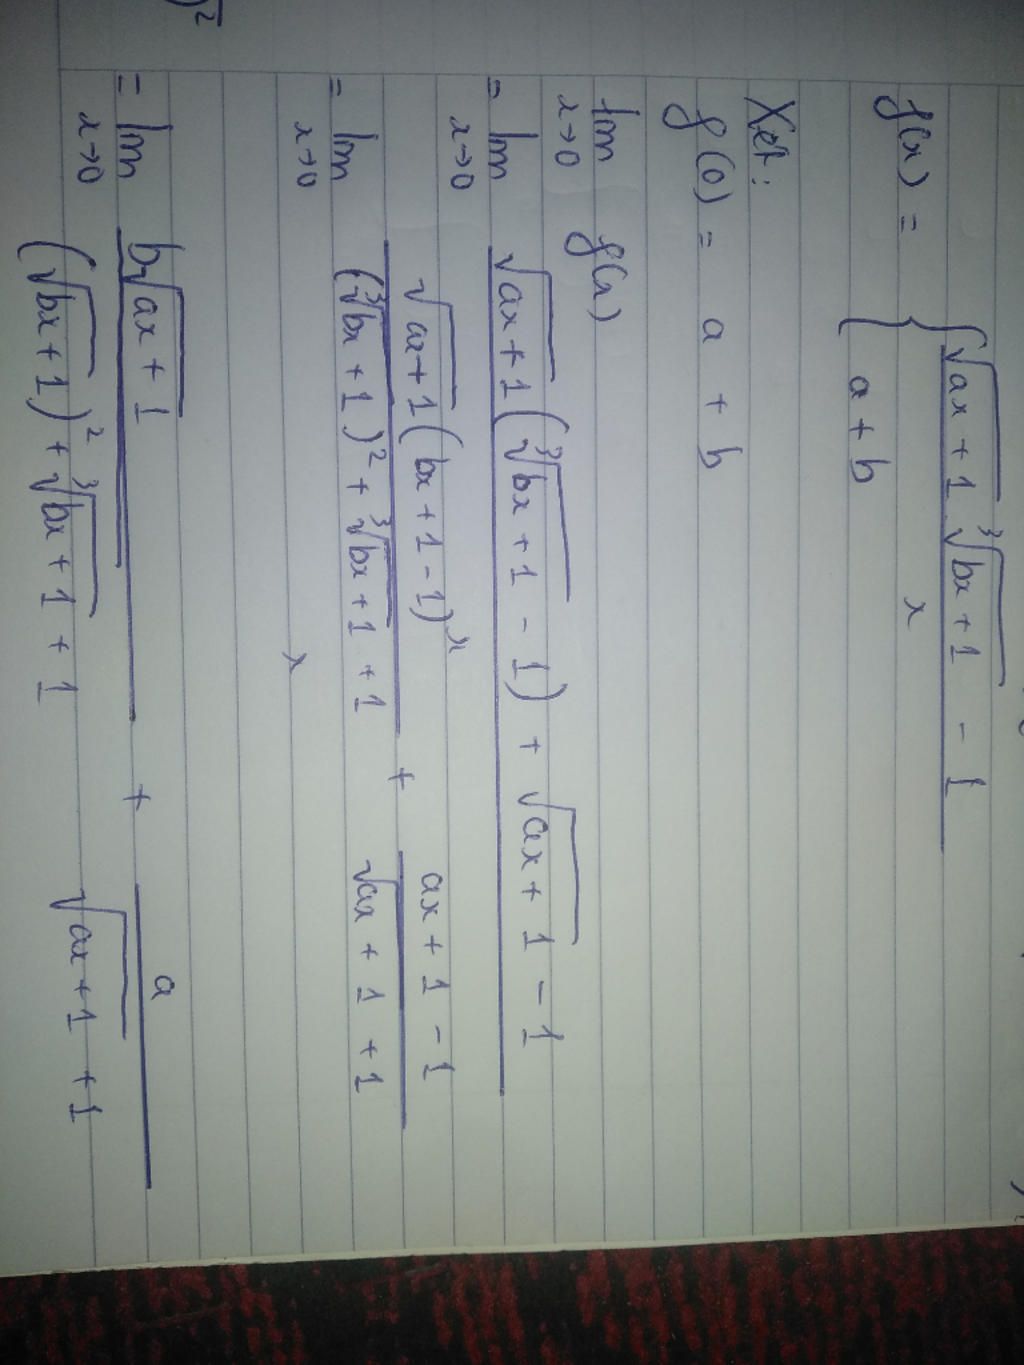 )²
f(x) = { (√(ax + 1) . ∛(bx + 1) - 1) / x
a + b
Xét:
f(0) = a + b
lim x→0 f(x)
= lim x→0 (√(ax + 1) (∛(bx + 1) - 1) + √(ax + 1) - 1) / x
= lim x→0 (√(ax + 1) (bx + 1 - 1) / ((∛(bx + 1))² + ∛(bx + 1) + 1) + (ax + 1 - 1) / (√(ax + 1) + 1)) / x
= lim x→0 b√(ax + 1) / ((√(bx + 1))² + ∛(bx + 1) + 1) + a / (√(ax + 1) + 1)